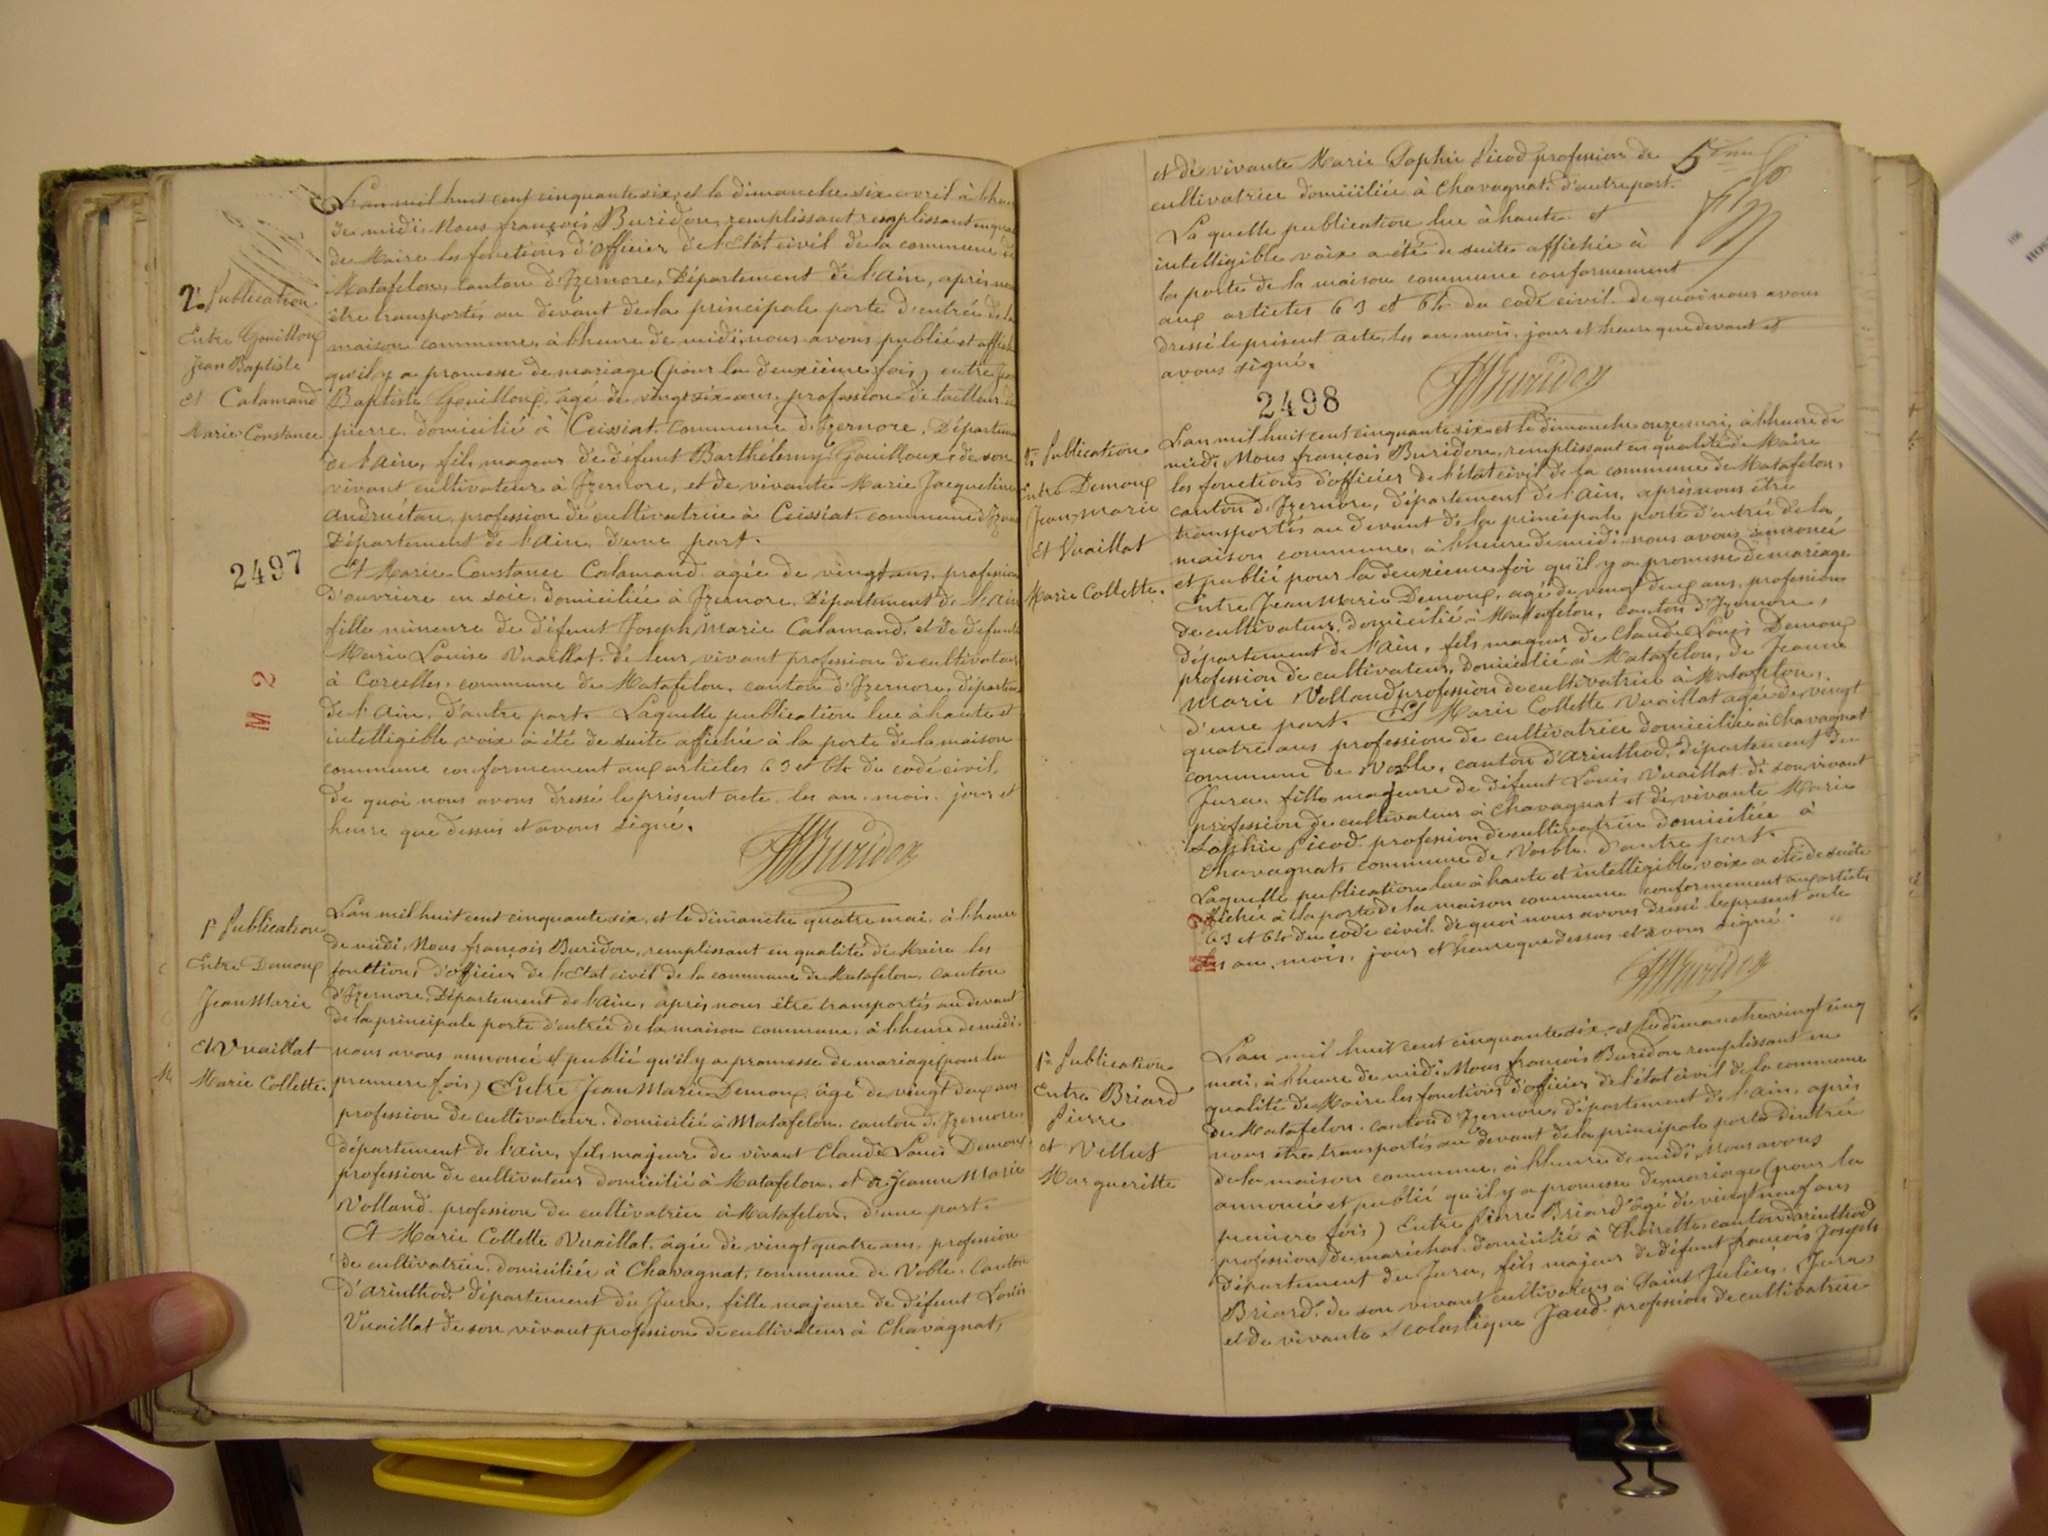 L'an mil huit cent cinquante six, et le dimanche six avril à l'heure
de midi, Nous françois Buridon, remplissant remplissant en qualité
de Maire les fonctions d'officier de l'Etat civil de la commune de
Matafelon, canton d'Izernore, Département de l'ain, après nous
être transportés au devant de la principale porte d'entrée de la
maison commune, à l'heure de midi, nous avons publié et affiché
qu'il y a promesse de mariage (pour la deuxième fois) entre Jean
Baptiste Gouilloux, agé de vingt six ans, profession de tailleur de
pierre, domicilié à Ceissiat, commune d'Izernore, Département
de l'ain, fils mageur de défunt Barthélemy Gouilloux de son
vivant cultivateur à Izernore, et de vivante Marie Jacqueline
andruitan, profession de cultivatrice à Ceissiat, commune d'Izernore
Département de l'ain, d'une part.
Et Marie Constance Calamand, agée de vingt ans, profession
d'ouvrière en soie, domiciliée à Izernore, Département de l'ain
fille mineure de défunt Joseph Marie Calamand, et de defunte
Marie Louise Vuaillat, de leur vivant profession de cultivateur
à Corcelles, commune de Matafelon, canton d'Izernore, département
de l'ain, d'autre part. Laquelle publication lue à haute et
intelligible voix a été de suite affichée à la porte de la maison
commune conformement aux articles 63 et 64 du code civil.
de quoi nous avons dressé le présent acte, les an, mois, jour et
heure que dessus et avons signé.
Buridon
2e Publication
Entre Gouilloux
Jean Baptiste
et Calamand
Marie Constance
2497
M 2
1e Publication
Entre Demoux
Jean Marie
Et Vuaillat
Marie Collette.
L'an mil huit cent cinquante six, et le dimanche quatre mai, à l'heure
de midi, Nous françois Buridon, remplissant en qualité de Maire les
fonctions d'officier de l'Etat civil de la commune de Matafelon, canton
d'Izernore, Département de l'ain, après nous être transportés au devant
de la principale porte d'entrée de la maison commune, à l'heure de midi,
nous avons annoncé et publié qu'il y a promesse de mariage (pour la
premiere fois) Entre Jean Marie Demoux, agé de vingt deux ans
profession de cultivateur, domicilié à Matafelon, canton d'Izernore,
département de l'ain, fils majeure de vivant Claude Louis Demoux,
profession de cultivateur domicilié à Matafelon, et de Jeanne Marie
Volland, profession de cultivatrice à Matafelon, d'une part.
Et Marie Collette Vuaillat, agée de vingt quatre ans, profession
de cultivatrice, domiciliée à Chavagnat, commune de Voble, canton
d'arinthod, département du Jura, fille majeure de défunt Louis
Vuaillat de son vivant profession de cultivateur à Chavagnat,
et de vivante Marie Sophie Picod profession de
cultivatrice domiciliée à Chavagnat, d'autre part.
La quelle publication lue à haute et
intelligible voix a été de suite affichée à
la porte de la maison commune conformement
aux articles 63 et 64 du code civil. de quoi nous avons
dressé le présent acte, les an, mois, jour et heure que devant et
avons signé.
Buridon
2498
Publication
Entre Demoux
Jean Marie
Et Vuaillat
Marie Collette.
L'an mil huit cent cinquante six et le dimanche onze mai, à l'heure de
midi, Nous françois Buridon, remplissant en qualité de Maire
les fonctions d'officier de l'état civil de la commune de Matafelon,
canton d'Izernore, département de l'ain, après nous être
transportés au devant de la principale porte d'entrée de la
maison commune, à l'heure de midi, nous avons annoncé
et publié pour la deuxieme foi qu'il y a promesse de mariage
Entre Jean Marie Demoux, agé de vingt deux ans, profession
de cultivateur, domicilié à Matafelon, canton d'Izernore,
département de l'ain, fils mageur de Claude Louis Demoux
profession de cultivateur, domicilié à Matafelon, de Jeanne
Marie Volland profession de cultivatrice à Matafelon,
d'une part. Et Marie Collette Vuaillat agée de vingt
quatre ans profession de cultivatrice domiciliée à Chavagnat
commune de Voble, canton d'arinthod, département du
Jura, fille majeure de défunt Louis Vuaillat de son vivant
profession de cultivateur à Chavagnat et de vivante Marie
Sophie Picod, profession de cultivatrice domiciliée à
Chavagnat, commune de Vosble, d'autre part.
Laquelle publication lue à haute et intelligible voix a été de suite
affichée à la porte de la maison commune conformement aux articles
63 et 64 du code civil. de quoi nous avons dressé le présent acte
les an, mois, jour et heure que dessus et avons signé.
Buridon
M 2
1e Publication
Entre Briard
Pierre
et Vellut
Margueritte
L'an mil huit cent cinquante six, et le dimanche vingt cinq
mai, à l'heure de midi Nous françois Buridon remplissant en
qualité de Maire les fonctions d'officier de l'état civil de la commune
de Matafelon, canton d'Izernore, département de l'ain, après
nous être transportés au devant de la principale porte d'entrée
de la maison commune, à l'heure de midi, Nous avons
annoncé et publié qu'il y a promesse de mariage (pour la
premiere fois) Entre Pierre Briard agé de vingt neuf ans
profession de maréchal, domicilié à Thoirette, canton d'arinthod
département du Jura, fils majeur de défunt françois Joseph
Briard, de son vivant cultivateur à Saint Julien, (Jura,
et de vivante Scolastique Jaud, profession de cultivatrice